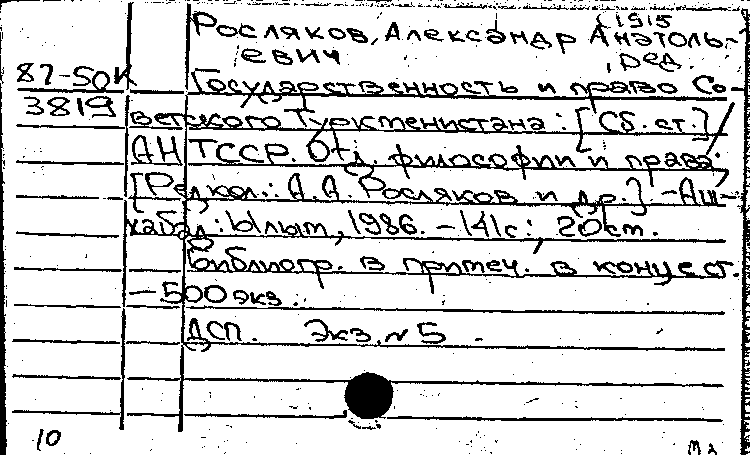 (1915
Росляков, Александр Анатоль-
евич, ред.
87-50К Государственность и право Со-
3819 ветского Туркменистана: [Сб. ст.]/
АН ТССР. Отд. философии и права;
[Редкол.: А.А. Росляков и др.] -Аш-
хабад: Ылым, 1986. - 141с.; 20см.
Библиогр. в примеч. в конце ст.
- 500 экз.
ДСП. Экз. № 5
10